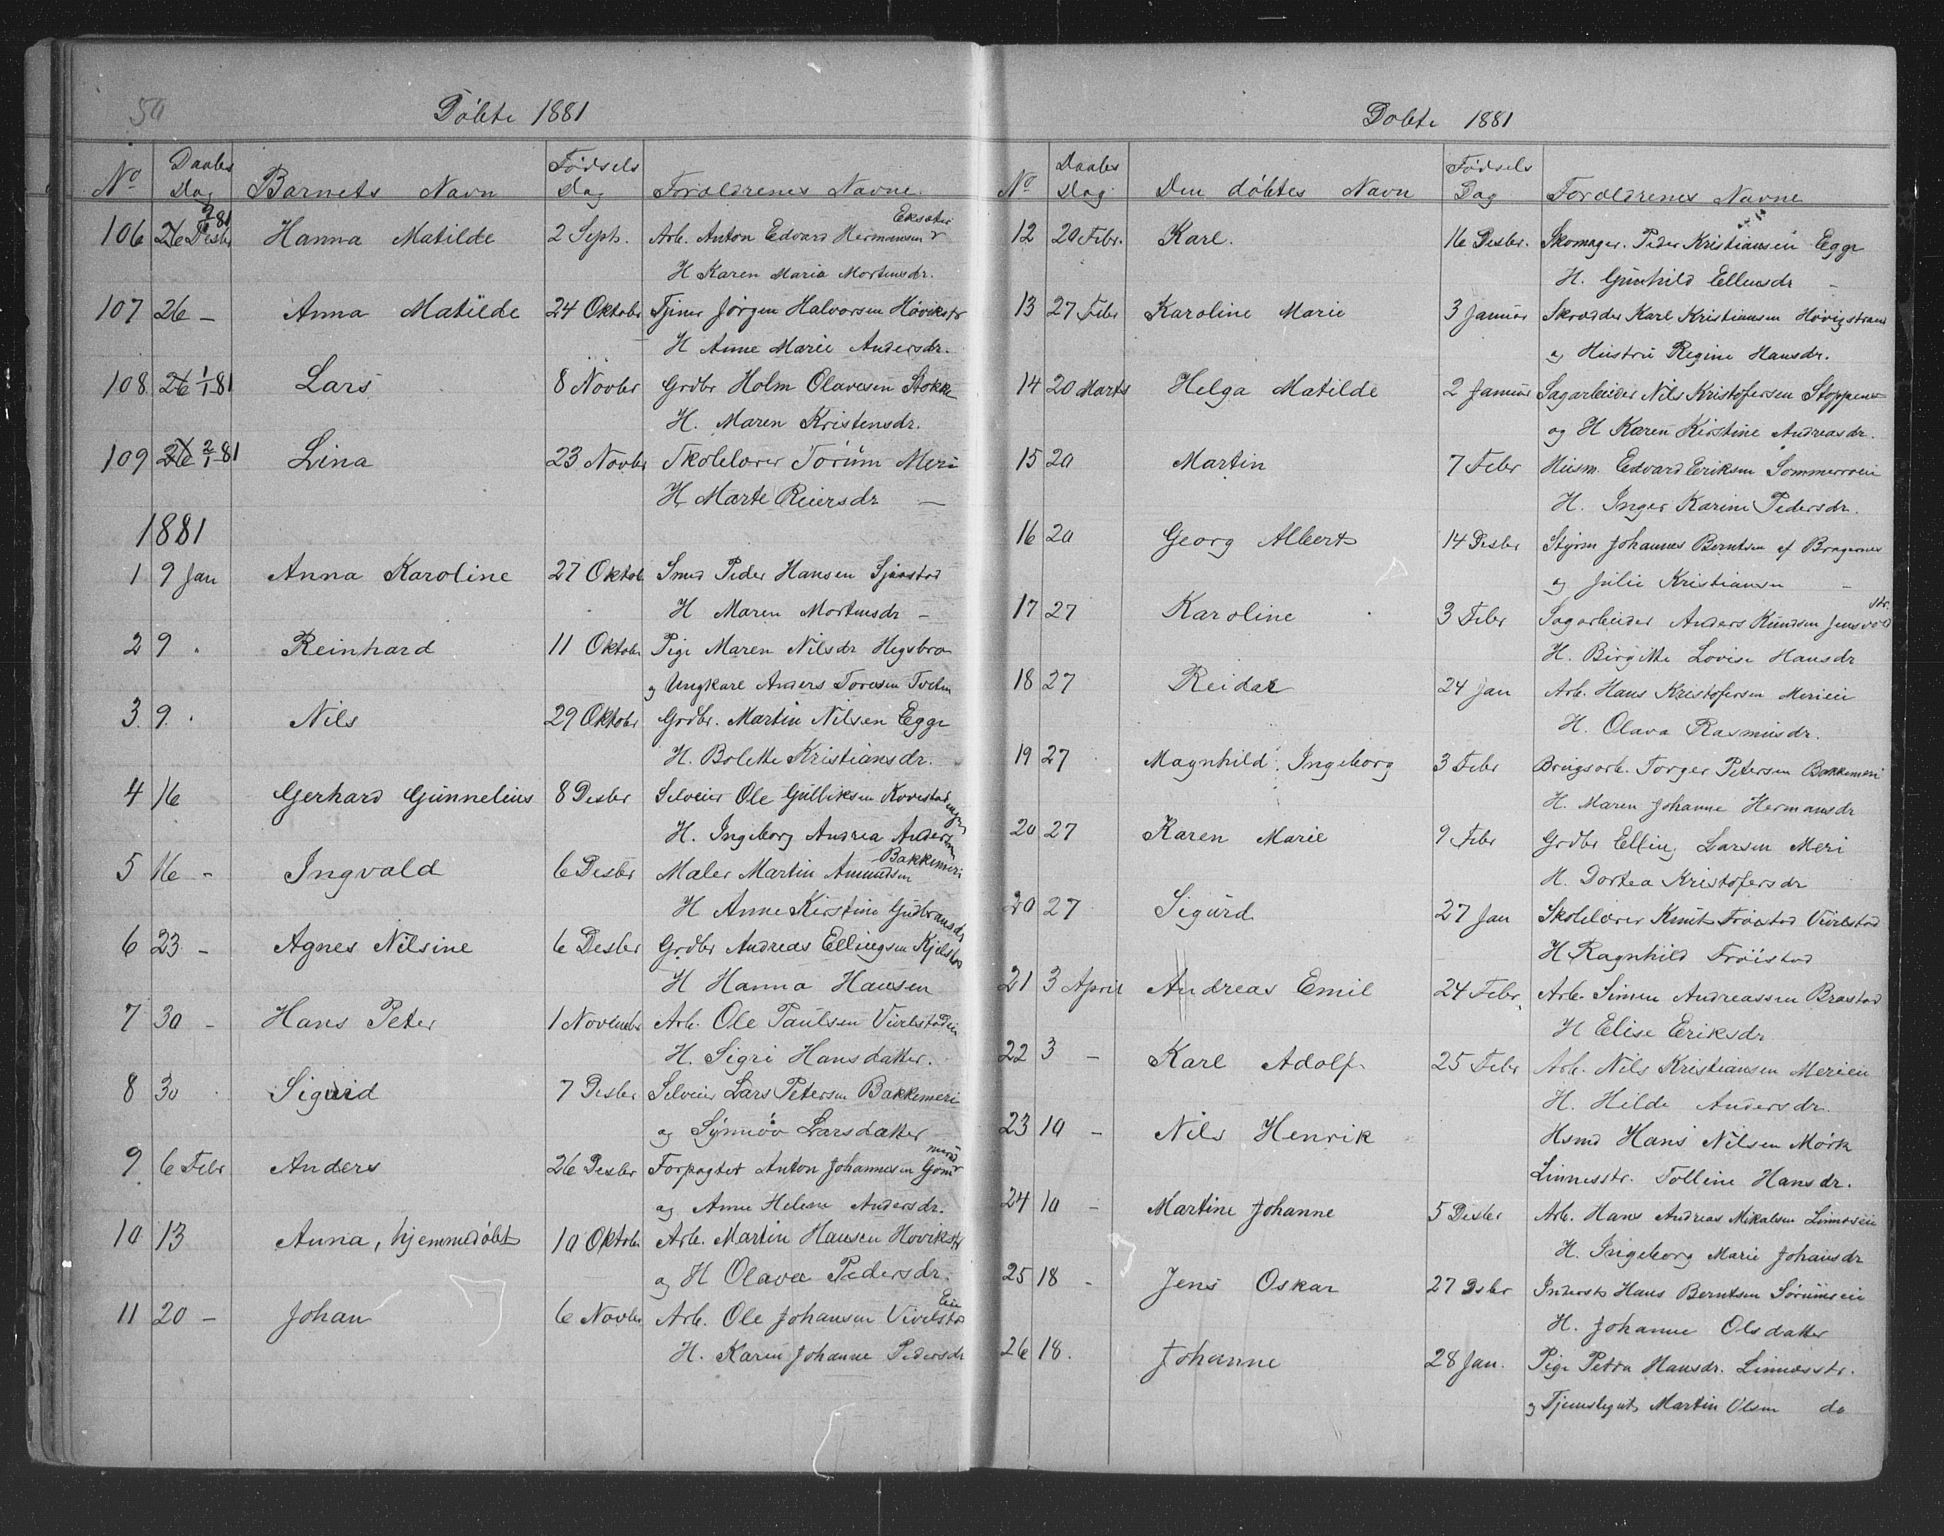 50
Døbte 1881
No Daabs Dag Barnets Navn Fødsels Dag Forældrenes Navne.
106 26 Desbr Hanna Matilde 2 Septb. Arb. Anton Edvard Hermansen Eksæter
H Karen Maria Mortensdr.
107 26 – Anna Matilde 24 Oktobr Tjener Jørgen Halvorsen Høvikstr
H Anne Marie Andersdr.
108 26 1/1-81 Lars 8 Novbr Grdbr Holm Olavesen Stokke
H. Maren Kristensdr.
109 26 2/1-81 Lina 23 Novbr Skolelærer Torüm Meri
H Marte Reiersdr –
1881
1 9 Jan Anna Karoline 27 Oktob. Smed Peder Hansen Sjaastad
H Maren Mortensdr –
2 9 . Reinhard 11 Oktobr Pige Maren Nilsdr Hegsbro
og Ungkarl Anders Toresen
3. 9. . Nils 29 Oktobr Grdbr. Martin Nilsen Egge
H. Bolette Kristiansdr.
4 16 Gerhard Günnelius 8 Desbr Selveier Ole Gülliksen
H. Ingeborg Andrea
5 16 – Ingvald 6 Desbr Maler Martin Amundsen Bakkemeri
H Anne Kirstine Gudbransdr
6 23 – Agnes Nilsine 6 Desbr Grdbr Andreas Ellingsen
H Hanna Hansen
7 30 – Hans Peter 1 Novembr Arb. Ole Paulsen
H. Sigri Hansdatter.
8 30 . Sigurd 7 Desbr Selveier Lars Petersen Bakkemeri
og Synnöv Larsdatter
9 6 Febr Anders 26 Desbr Forpagter Anton Johannesen
og Anne Helene Andersdr.
10 13 Anna, hjemmedøbt 10 Oktobr Arb. Martin Hansen Hovikstr
og H Olava Pedersdr.
11 20 – Johan 6 Novbr Arb. Ole Johansen
H. Karen Johanne Pedersdr
Døbte 1881
No Daabs Dag. Den døbtes Navn Fødsels Dag Forældrenes Navne
12 20 Febr. Karl. 16 Desbr. Skomager. Peder Kristiansen Egge
H. Günhild Ellensdr –
13 27 Febr Karoline Marie 3 Januar Skrædder Karl Kristiansen Høvigstrand
og Hüstrü Regine Hansdr.
14 20 Marts Helga Matilde 2 Januar Sagarbeider Nils Kristofersen
og H Karen Kirstine Andreasdr.
15 20 Martin 7 Febr Husm. Edvard Eriksen
H. Inger Karine Pedersdr.
16 20 Georg Albert 14 Desbr Styrm Johannes Berntsen af Bragernes
og Julie Kristiansen –
17 27 Karoline 3 Febr Sagarbeider Anders Knudsen
H. Birgitte Lovise Hansdr
18 27 Reidar 24 Jan Arb. Hans Kristofersen Merieie
H. Olava Rasmusdr.
19 27 Magnhild Ingeborg 3 Febr Brugsarb. Torger Petersen Bakkemeri
H. Maren Johanne Hermansdr
20 27 Karen Marie 9 Febr Grdbr Elling Larsen Meri
H. Dortea Kristofersdr
20 27 Sigürd 27 Jan Skolelærer Knut Frøistad Vivelstad
H Ragnhild Frøistad
21 3 April Andreas Emil 24 Febr. Arb. Simen Andreassen Brastad
H Elise Eriksdr
22 3 – Karl Adolf. 25 Febr Arb. Nils Kristiansen Merieie
H. Hilde Andersdr.
23 10 – Nils Henrik Hsmd Hans Nilsen Mørk
Linnesstr. Tolline Hansdr.
24 10 – Martine Johanne 5 Desbr Arb. Hans Andreas Mikalsen Linneseie
H. Ingeborg Marie Johansdr
25 18 – Jens Oskar 27 Dsbr Inderst Hans Berntsen Sørumseie
H. Johanne Olsdatter
26 18. Johanne 28 Jan. Pige Petra Hansdr. Linnesstr.
og Martin Olsen do